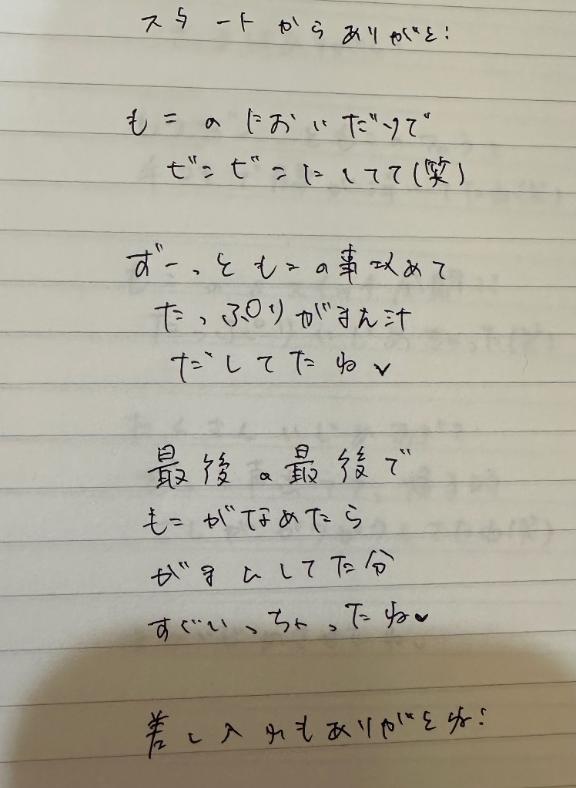 スタートからありがと!
もこのにおいだけで
ビンビンにしてて(笑)
ずーっともこの事攻めて
たっぷりがまん汁
だしてたね✓
最後の最後で
もこがなめたら
がまんしてた分
すぐいっちゃったね✓
差し入れもありがとね!